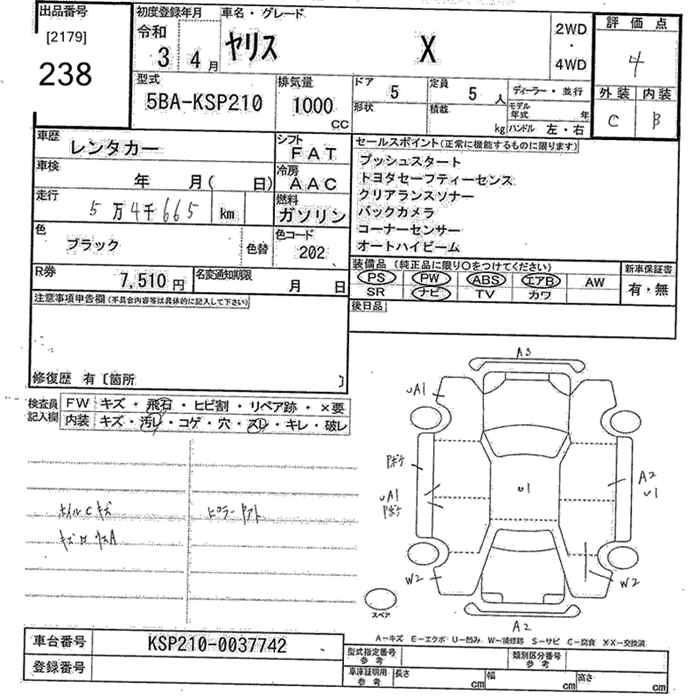 出品番号
[2179]
238
初度登録年月
令和
3年 4月
車名・グレード
ヤリス X
2WD
・
4WD
評価点
4
外装 内装
C B
型式
5BA-KSP210
排気量
1000
CC
ドア 5
形状
定員 5 人
積載 kg
ディーラー・並行
モデル年式 年
ハンドル 左・右
車歴
レンタカー
シフト
FAT
車検
年 月( 日)
冷房
AAC
走行
5万4千665 km
燃料
ガソリン
色
ブラック
色替
色コード
202
R券
7,510円
名変通知期限
月 日
セールスポイント(正常に機能するものに限ります)
プッシュスタート
トヨタセーフティーセンス
クリアランスソナー
バックカメラ
コーナーセンサー
オートハイビーム
装備品 (純正品に限り○をつけてください)
PS PW ABS エアB AW
SR ナビ TV カワ
新車保証書
有・無
後日品
注意事項申告欄(不具合内容等は具体的に記入して下さい)
修復歴 有〔箇所 〕
検査員
記入欄
FW キズ・飛石・ヒビ割・リペア跡・×要
内装 キズ・汚レ・コゲ・穴・スレ・キレ・破レ
ホイルCキズ
ピラー
A3
A1
A1
A2
W2
W2
A2
スペア
A-キズ E-エクボ U-凹み W-補修跡 S-サビ C-腐食 XX-交換済
車台番号
KSP210-0037742
登録番号
型式指定番号
参考
類別区分番号
参考
車庫証明用
参考
長さ cm 幅 cm 高さ cm